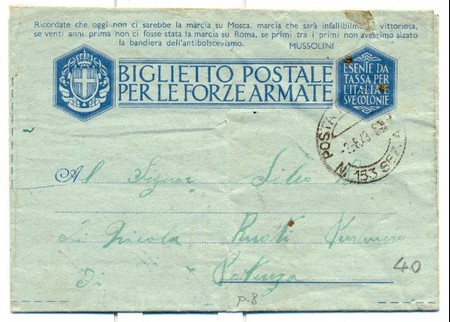 Ricordate che oggi non ci sarebbe la marcia su Mosca, marcia che sarà infallibilmente vittoriosa,
se venti anni prima non ci fosse stata la marcia su Roma, se primi tra i primi non avessimo alzato
la bandiera dell'antibolscevismo. MUSSOLINI
BIGLIETTO POSTALE
PER LE FORZE ARMATE
ESENTE DA
TASSA PER
L'ITALIA E
SVE COLONIE
POSTA
N. 153 SEZ. A
Al Signor Silvio
di Nicola Ruoti
Di Potenza
40
P-8